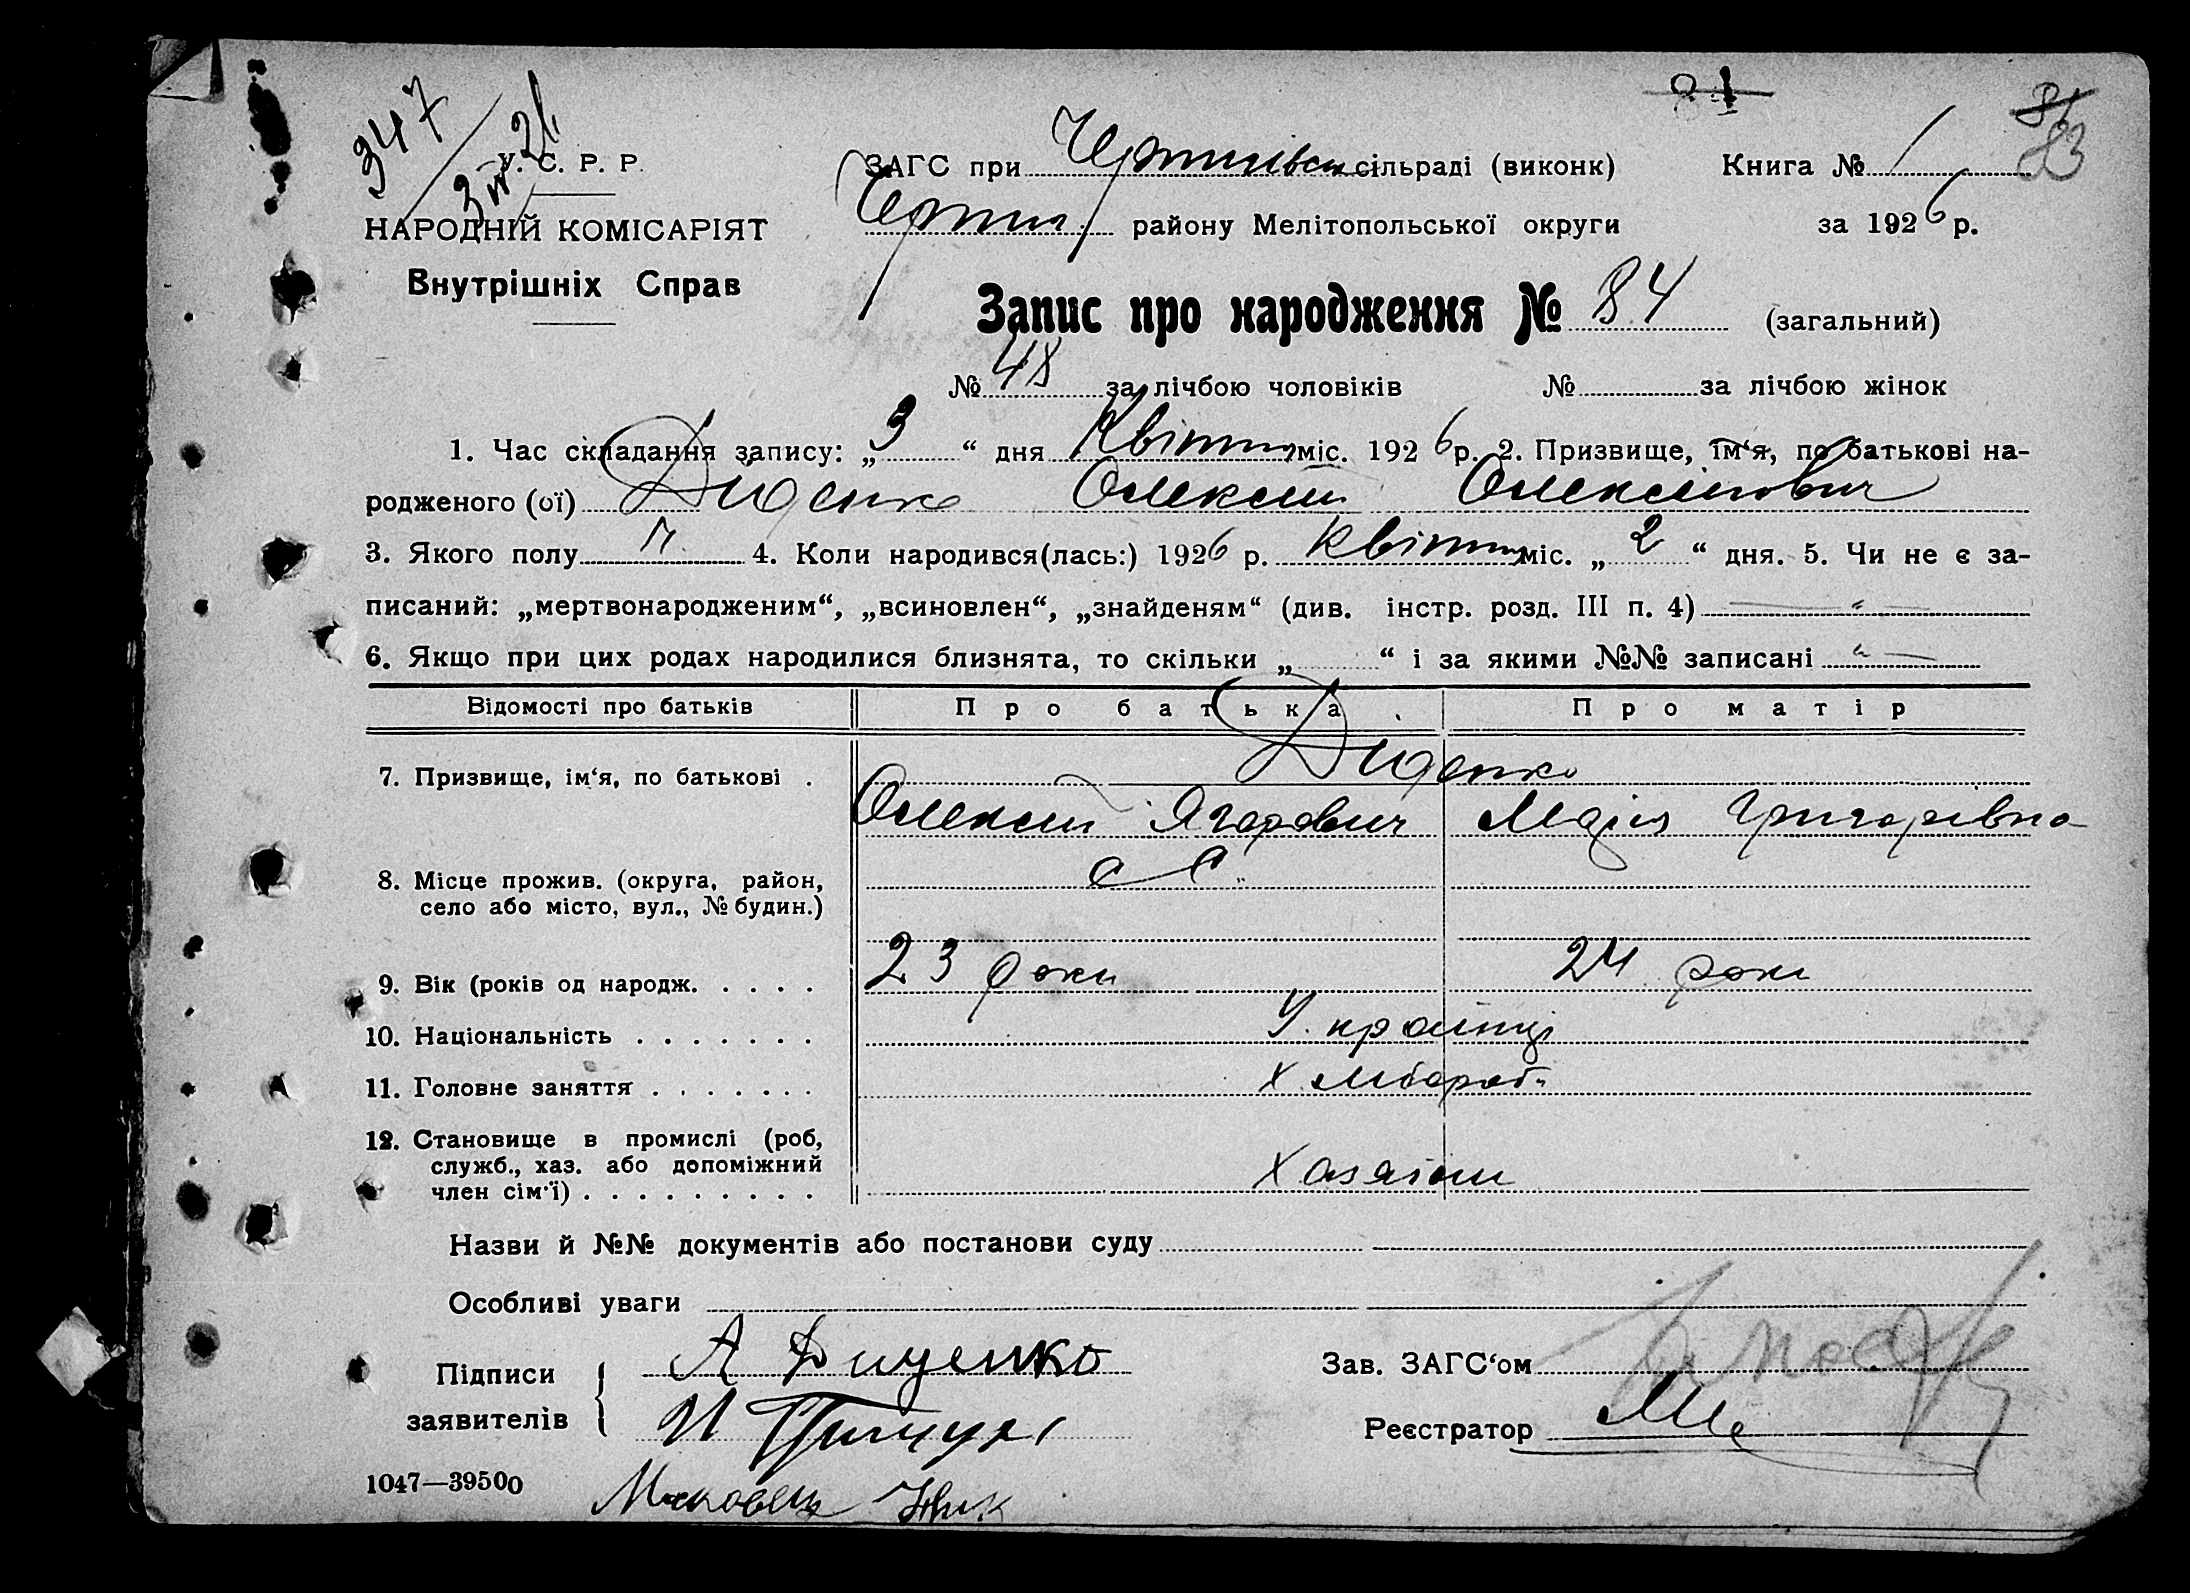 81
81
83
347
3/IV 26
У. С. Р. Р.
НАРОДНІЙ КОМІСАРІЯТ
Внутрішніх Справ
ЗАГС при сільраді (виконк) Книга № 1
району Мелітопольської округи за 1926 р.
Запис про народження № 84 (загальний)
№ 48 за лічбою чоловіків № за лічбою жінок
1. Час складання запису: „ 3 “ дня Квітня міс. 1926 р. 2. Призвище, ім‘я, по батькові на-
родженого (ої) Диденко Олексій Олексійович
3. Якого полу Ч. 4. Коли народився(лась:) 1926 р. Квітня міс. „ 2 “ дня. 5. Чи не є за-
писаний: „мертвонародженим“, „всиновлен“, „знайденям“ (див. інстр. розд. III п. 4) — „ —
6. Якщо при цих родах народилися близнята, то скільки „ “ і за якими №№ записані „ —
Відомості про батьків Про батька Про матір
7. Призвище, ім‘я, по батькові . Диденко
Олексій Ягорович Марія Григорівна
8. Місце прожив. (округа, район,
село або місто, вул., № будин.)
9. Вік (років од народж. . . . . 23 роки 24 роки
10. Національність . . . . . . . Українці
11. Головне заняття . . . . . . . Хлібороб.
12. Становище в промислі (роб,
служб., хаз. або допоміжний
член сім‘ї) . . . . . . . . . Хазяїни
Назви й №№ документів або постанови суду
Особливі уваги
Підписи А Диденко Зав. ЗАГС‘ом
заявителів И Реєстратор
1047—39500